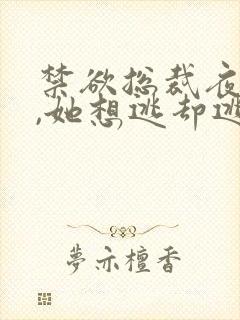 禁欲总裁夜
,她想逃却逃
夢示檀香